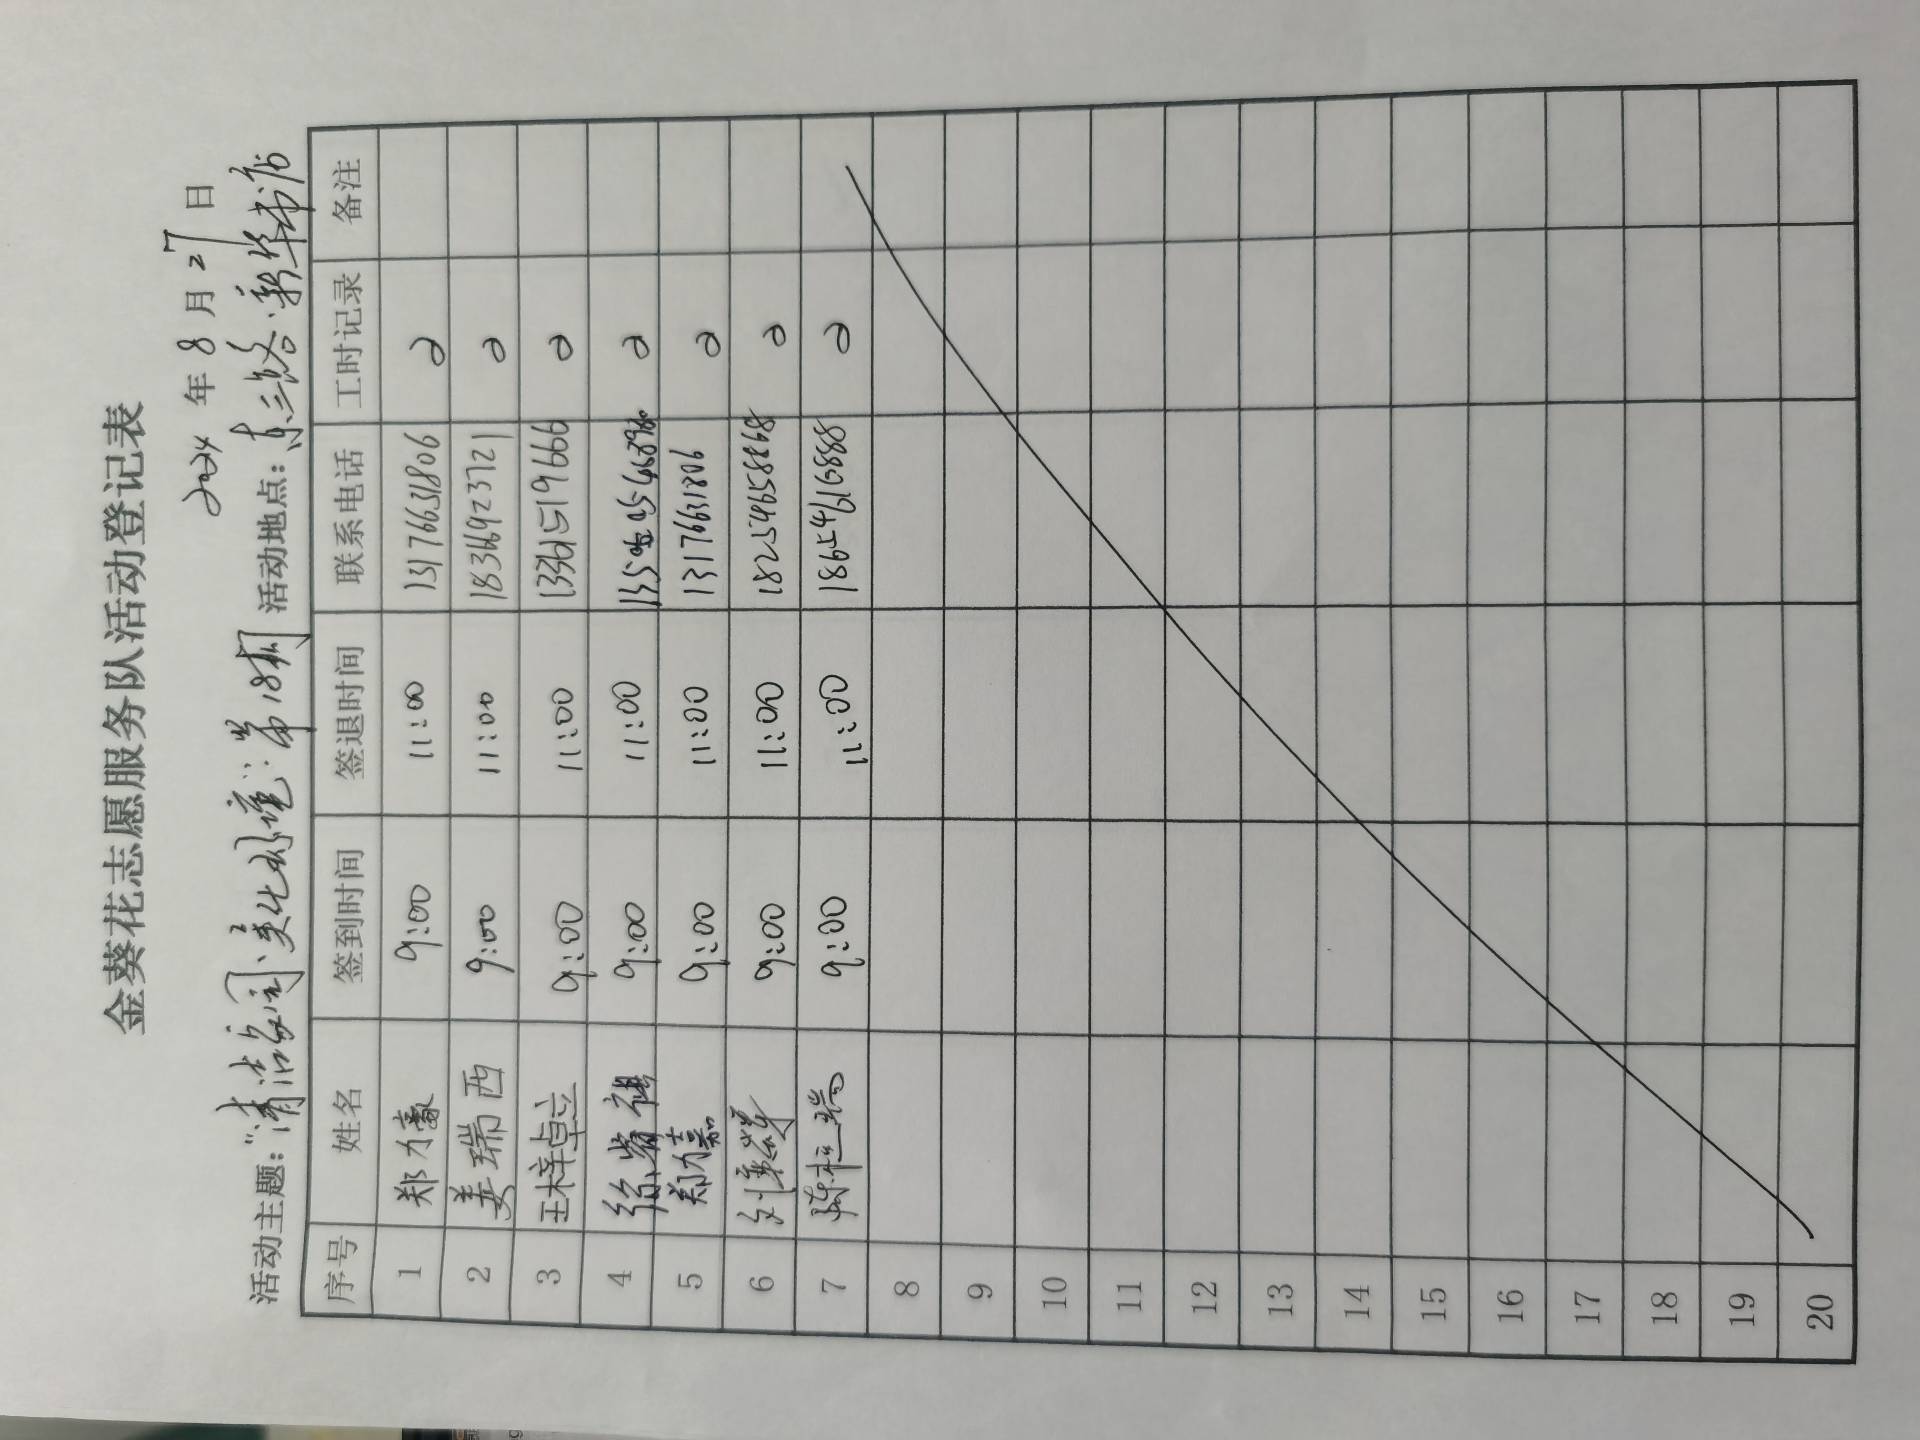 金葵花志愿服务队活动登记表
2024 年 8 月 27 日
活动主题：“清洁家园、美化环境”第18期 活动地点：东三路新华书店
序号 姓名 签到时间 签退时间 联系电话 工时记录 备注
1 郑力豪 9:00 11:00 13176631806 2
2 姜瑞西 9:00 11:00 18366923721 2
3 王梓卓 9:00 11:00 13361519666 2
4 徐 祺 9:00 11:00 2
5 郑力嘉 9:00 11:00 13176631806 2
6 刘 9:00 11:00 18254658868 2
7 陈柱瑞 9:00 11:00 18654616888 2
8
9
10
11
12
13
14
15
16
17
18
19
20